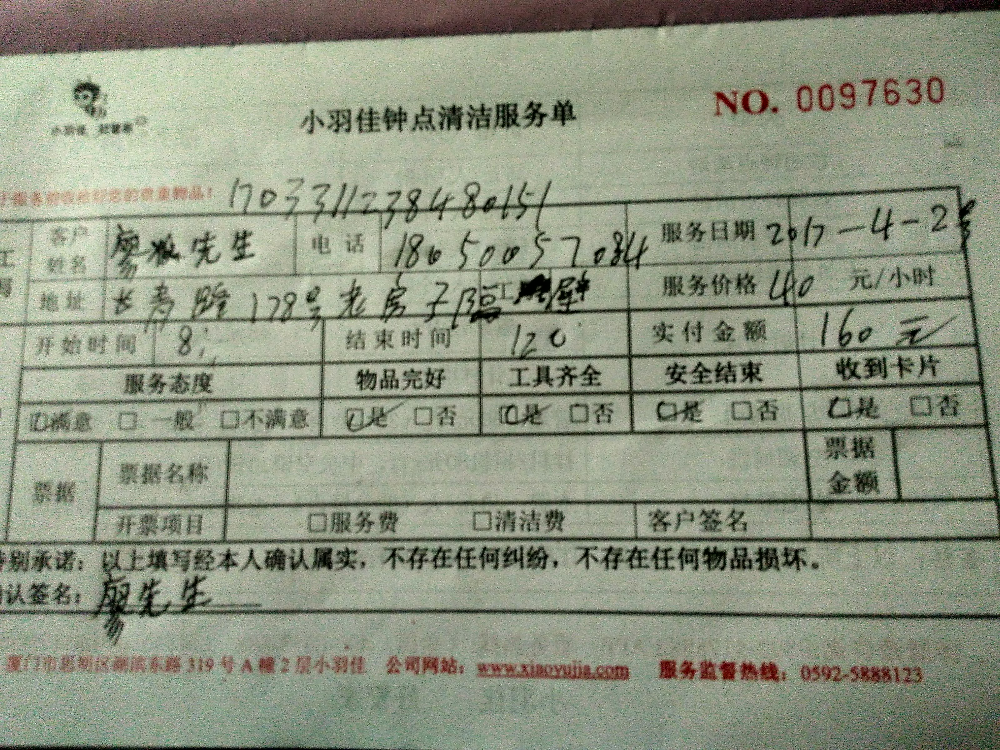 小羽佳 好管家
小羽佳钟点清洁服务单
NO. 0097630
1703311238480151
客户姓名 廖 先生 电话 18650057084 服务日期 2017-4-2
地址 长青路178号老房子 服务价格 40 元/小时
开始时间 8: 结束时间 120 实付金额 160元
服务态度 物品完好 工具齐全 安全结束 收到卡片
☑满意 □一般 □不满意 ☑是 □否 ☑是 □否 ☑是 □否 ☑是 □否
票据 票据名称 票据金额
开票项目 □服务费 □清洁费 客户签名
特别承诺：以上填写经本人确认属实，不存在任何纠纷，不存在任何物品损坏。
确认签名：廖先生
厦门市思明区湖滨东路319号A幢2层小羽佳 公司网站：www.xiaoyujia.com 服务监督热线：0592-5888123